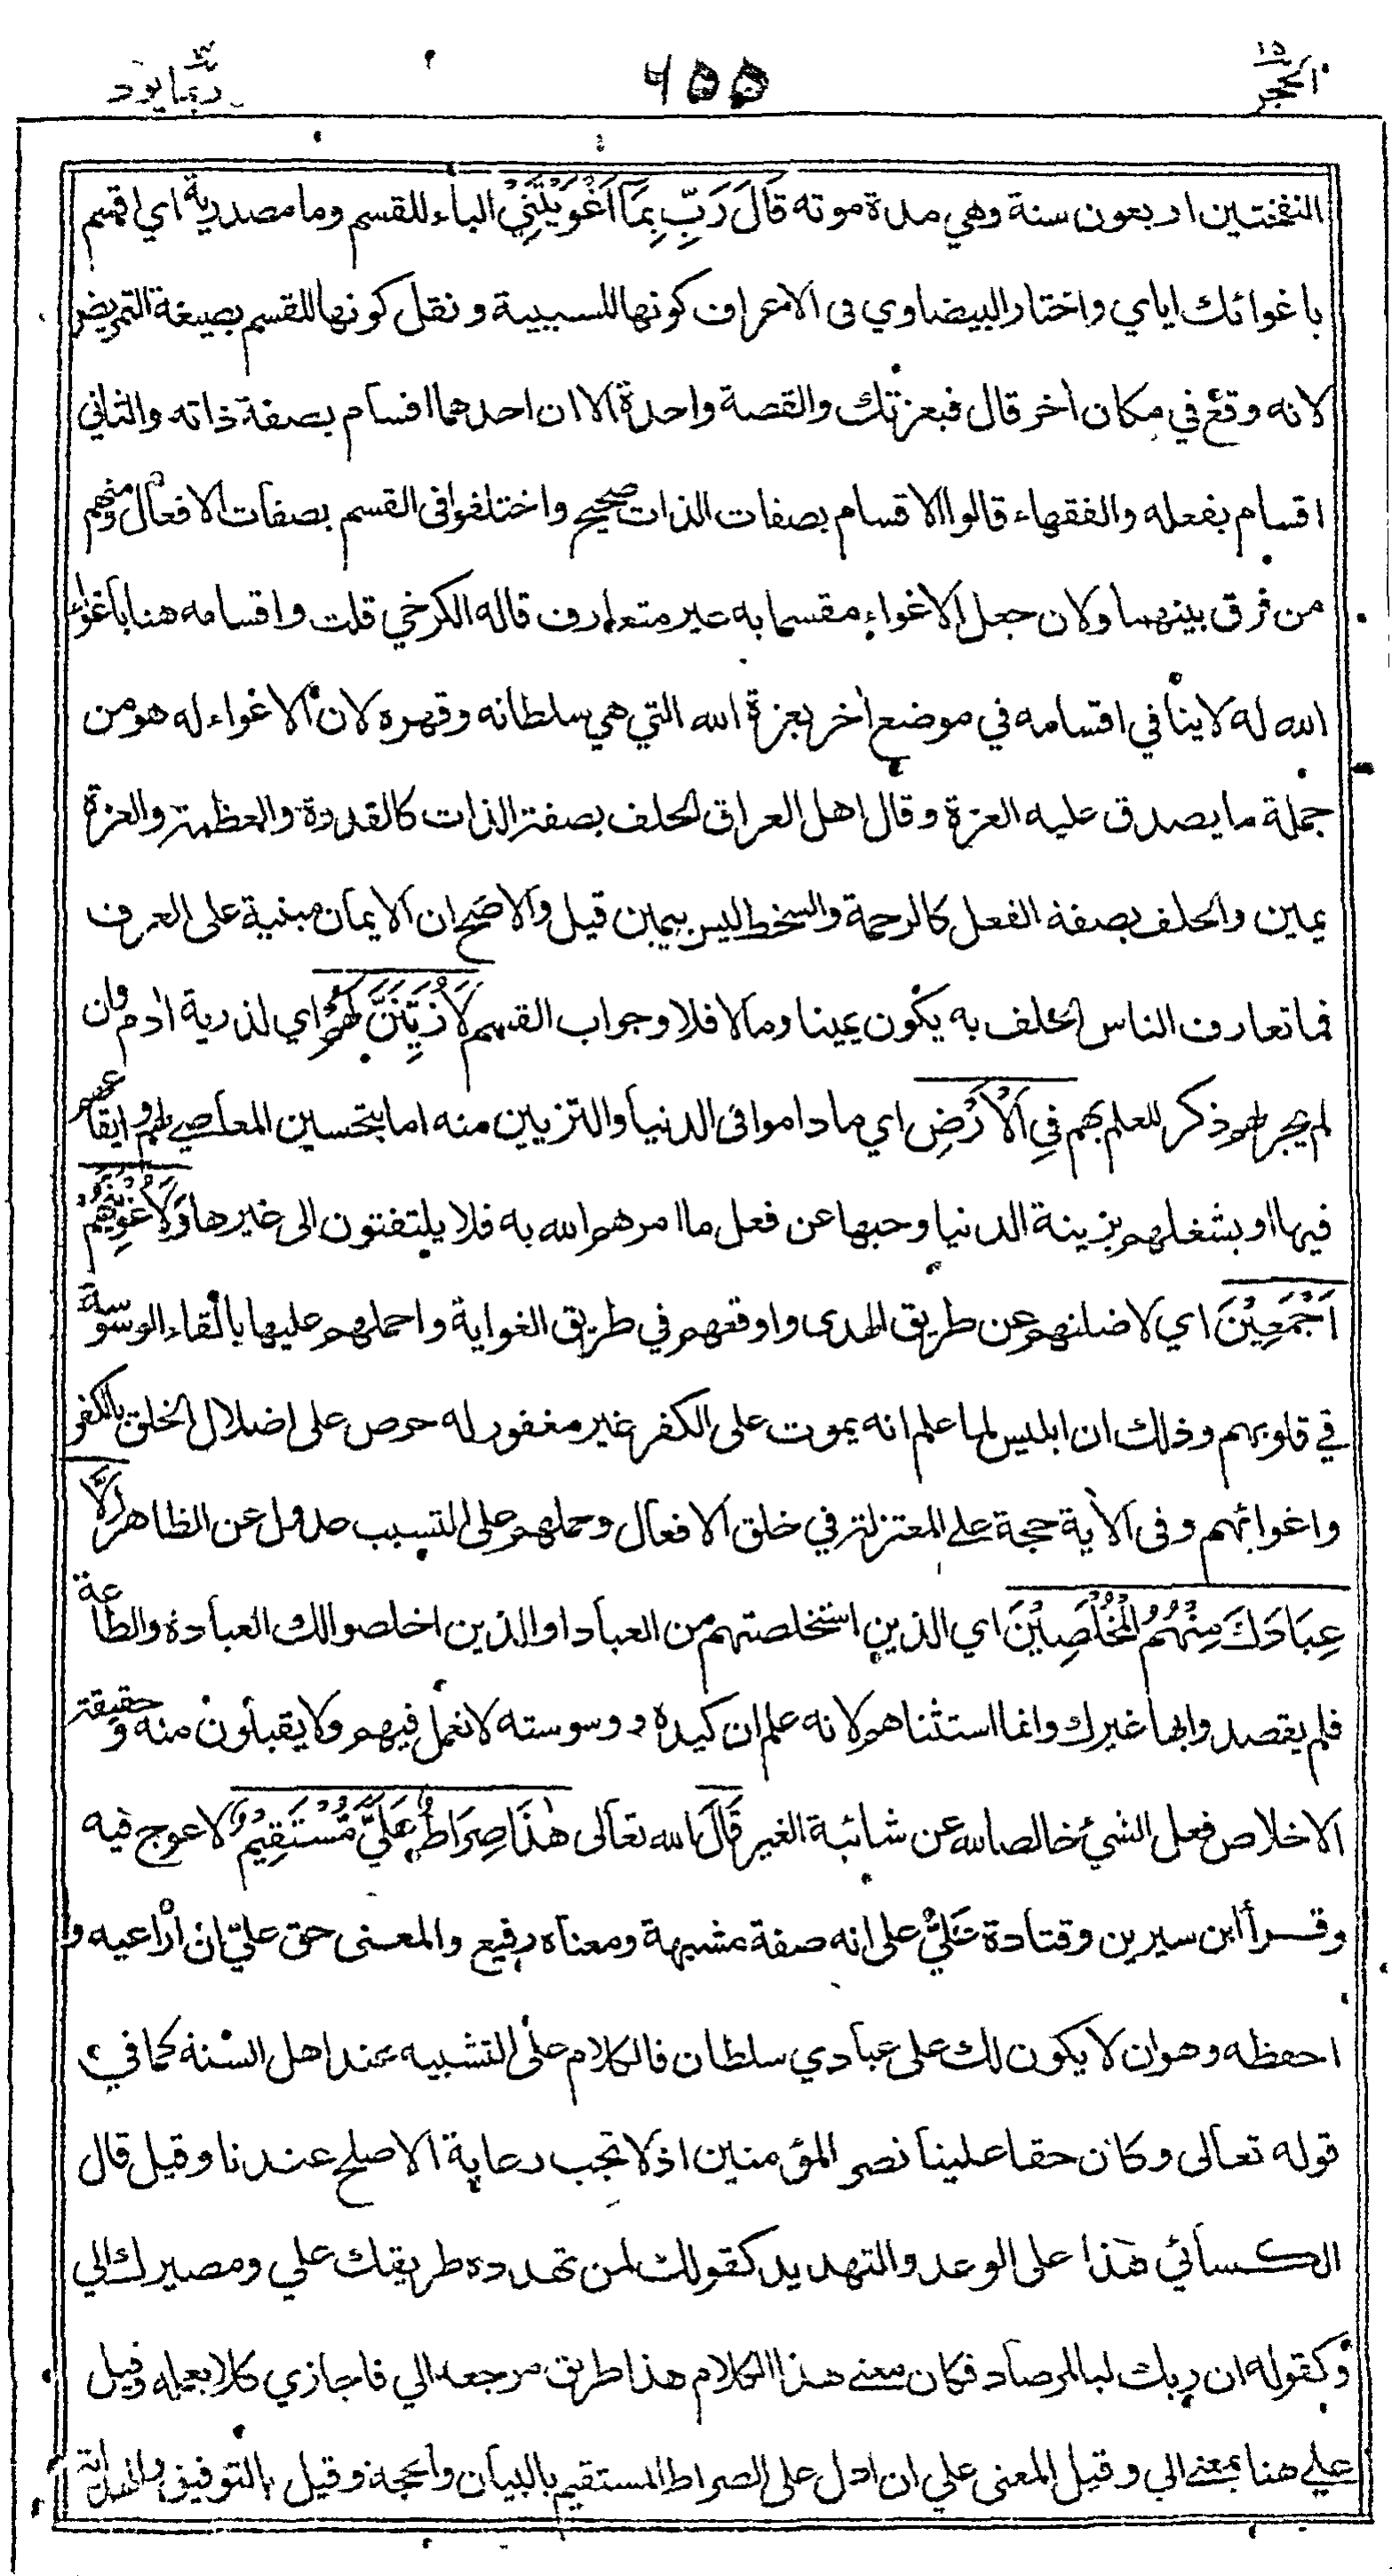 الحجر ١٥
٦٥٥
ربما يود
النفختين اربعون سنة وهي مدة موته قَالَ رَبِّ بِمَا اَغْوَيْتَنِيْ الباء للقسم وما مصدرية اي اقسم
باغوائك اياي واختار البيضاوي فى الاعراف كونها للسببية ونقل كونها للقسم بصيغة التمريض
لانه وقع في مكان اخر قال فبعزتك والقصة واحدة الا ان احدهما اقسام بصفة ذاته والثاني
اقسام بفعله والفقهاء قالوا الاقسام بصفات الذات صحيح واختلفوا فى القسم بصفات الافعال ومنهم
من فرق بينهما ولان جعل الاغواء مقسما به غير متعارف قاله الكرخي قلت واقسامه هنا باغواء
الله له لا ينافي اقسامه في موضع اخر بعزة الله التي هي سلطانه وقهره لان الاغواء له هو من
جملة ما يصدق عليه العزة وقال اهل العراق الحلف بصفة الذات كالقدرة والعظمة والعزة
يمين والحلف بصفة الفعل كالرحمة والسخط ليس بيمين قيل والاصح ان الايمان مبنية على العرف
فما تعارف الناس الحلف به يكون يمينا وما لا فلا وجواب القسم لَاُزَيِّنَنَّ لَهُمْ اي لذرية ادم وان
لم يجر لهم ذكر للعلم بهم فِي الْاَرْضِ اي ما داموا فى الدنيا والتزيين منه اما بتحسين المعاصي لهم وايقاعهم
فيها او بشغلهم بزينة الدنيا وحبها عن فعل ما امرهم الله به فلا يلتفتون الى غيرها وَلَاُغْوِيَنَّهُمْ
اَجْمَعِيْنَ اي لاضلنهم عن طريق الهدى واوقعهم في طريق الغواية واحملهم عليها بالقاء الوسوسة
في قلوبهم وذلك ان ابليس لما علم انه يموت على الكفر غير مغفور له حرص على اضلال الخلق بالكفر
واغوائهم وفى الاية حجة على المعتزلة في خلق الافعال وحملهم على التسبب عدول عن الظاهر اِلَّا
عِبَادَكَ مِنْهُمُ الْمُخْلَصِيْنَ اي الذين استخلصتهم من العباد او الذين اخلصوا لك العبادة والطاعة
فلم يقصدوا بها غيرك وانما استثناهم لانه علم ان كيده ووسوسته لا تعمل فيهم ولا يقبلون منه وحقيقة
الاخلاص فعل الشيئ خالصا لله عن شائبة الغير قَالَ الله تعالى هٰذَا صِرَاطٌ عَلَيَّ مُسْتَقِيْمٌ لا عوج فيه
وقـرأ ابن سيرين وقتادة عَلِيٌّ على انه صفة مشبهة ومعناه رفيع والمعنى حق عليّ ان اراعيه و
احفظه وهو ان لا يكون لك على عبادي سلطان فالكلام على التشبيه عند اهل السنة كما في
قوله تعالى وكان حقا علينا نصر المؤمنين اذ لا تجب رعاية الاصلح عندنا وقيل قال
الكسائي هذا على الوعد والتهديد كقولك لمن تهدده طريقك علي ومصيرك الي
وكقوله ان ربك لبالمرصاد فكان معنى هذا الكلام هذا طريق مرجعه الي فاجازي كلا بعمله وقيل
علي هنا بمعنى الي وقيل المعنى علي ان ادل على الصراط المستقيم بالبيان والحجة وقيل بالتوفيق والهداية